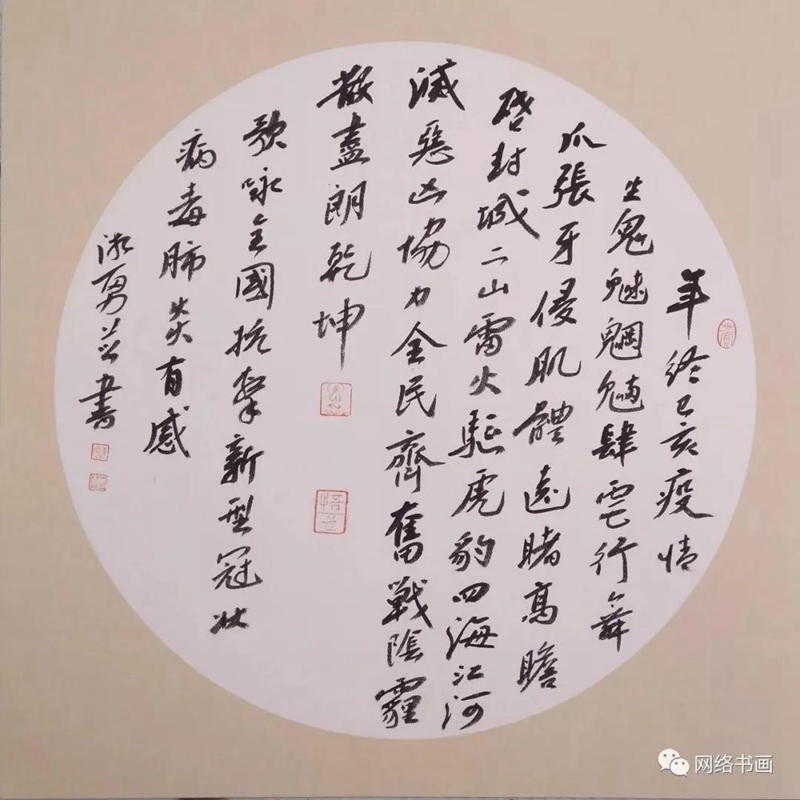 年終己亥疫情
生鬼魅魍魎肆雲行舞
爪張牙侵肌體遠賭高瞻
啓封城二山雷火驅虎豹四海江河
滅惡凶協力全民齊奮戰陰霾
散盡朗乾坤
歌咏全國抗擊新型冠状
病毒肺炎有感
勇並書
网络书画